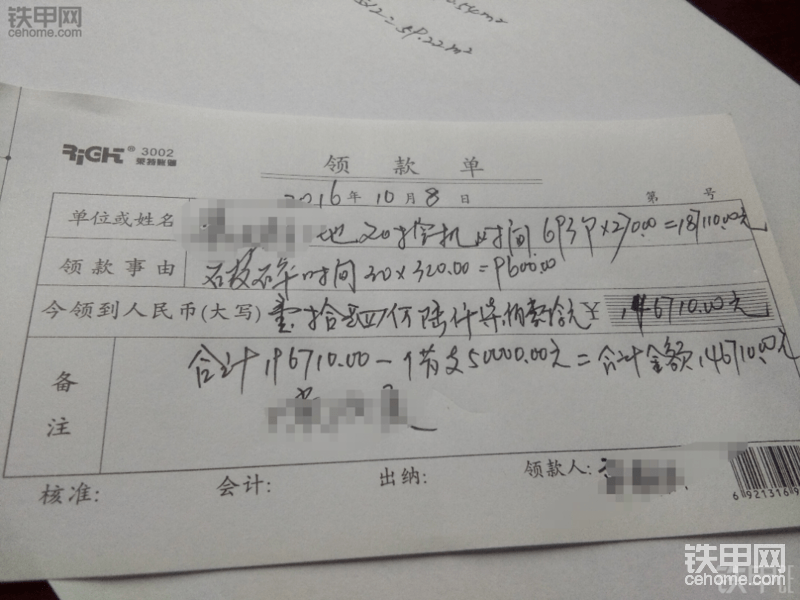 铁甲网
cehome.com
59.22m²
RiGHT® 3002
莱特账簿
领款单
2016年10月8日 第 号
单位或姓名 地20挖机时间693个×270.00=187110.00元
领款事由 时间30×320.00=9600.00
今领到人民币(大写) 壹拾 ¥ 146710.00元
备注 合计196710.00-借支50000.00元=合计金额146710.00元
核准: 会计: 出纳: 领款人:
6 921316 9
铁甲网
cehome.com